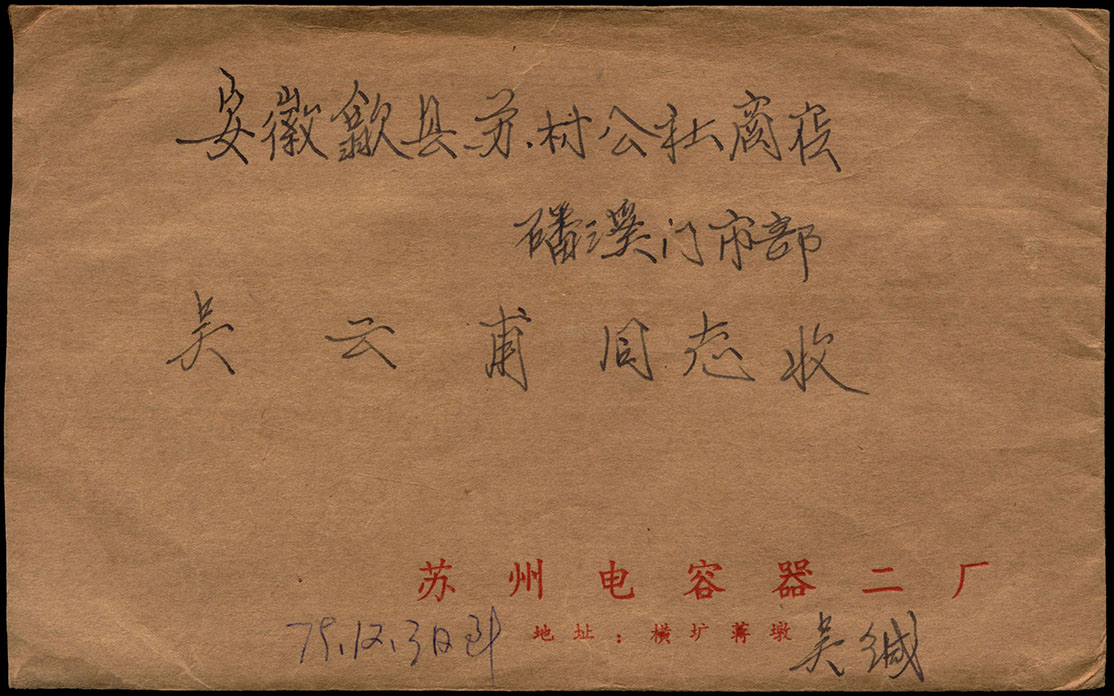 安徽歙县苏村公社商店
磻溪门市部
吴云甫同志收
苏州电容器二厂
地址：横圹蒋墩
吴缄
12.3日到